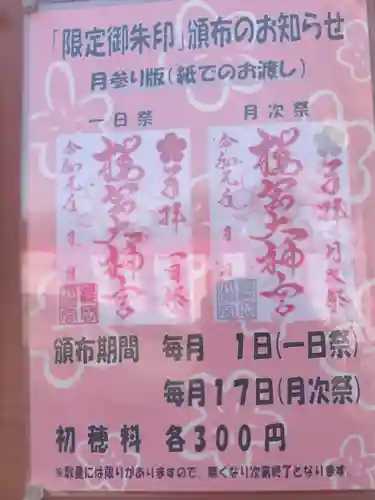 「限定御朱印」頒布のお知らせ
月参り版(紙でのお渡し)
一日祭
月次祭
奉拝 一日祭
櫻宮大神宮
令和元年 月 日
奉拝 月次祭
櫻宮大神宮
令和元年 月 日
頒布期間 毎月 1日(一日祭)
毎月17日(月次祭)
初穂料 各300円
※数量には限りがありますので、無くなり次第終了となります